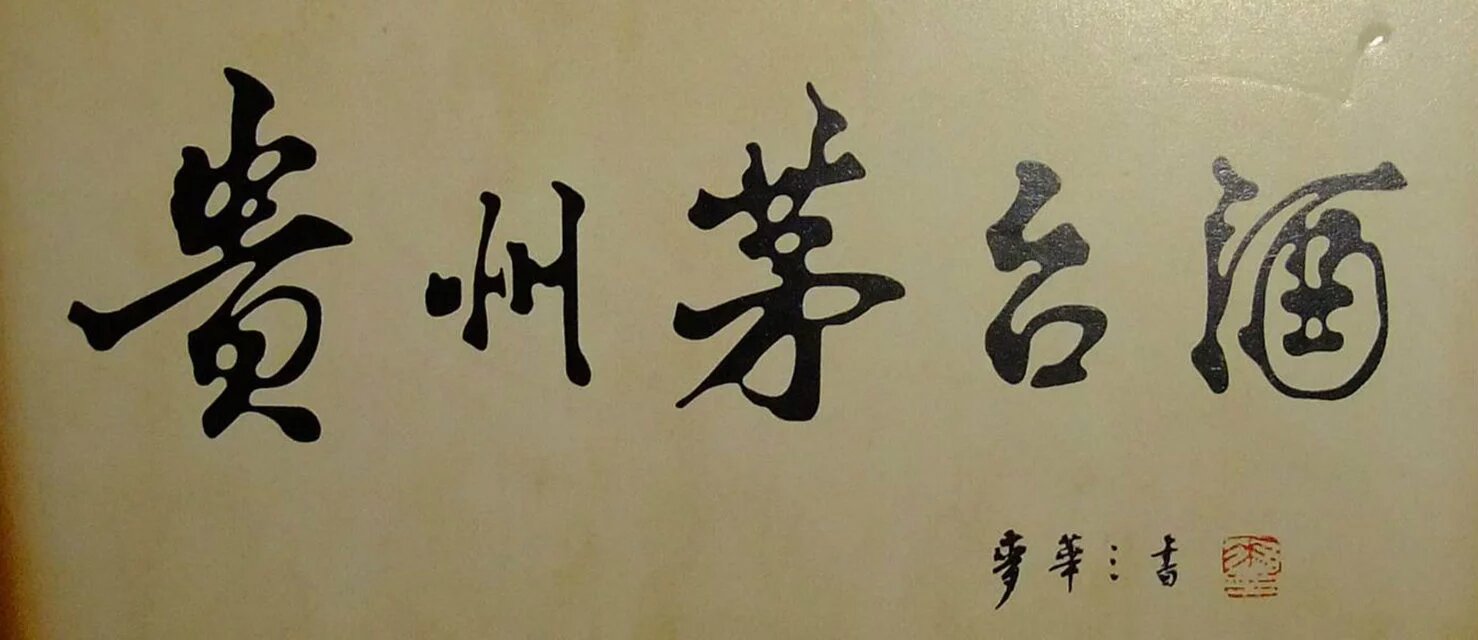 貴州茅台酒
麥華三書